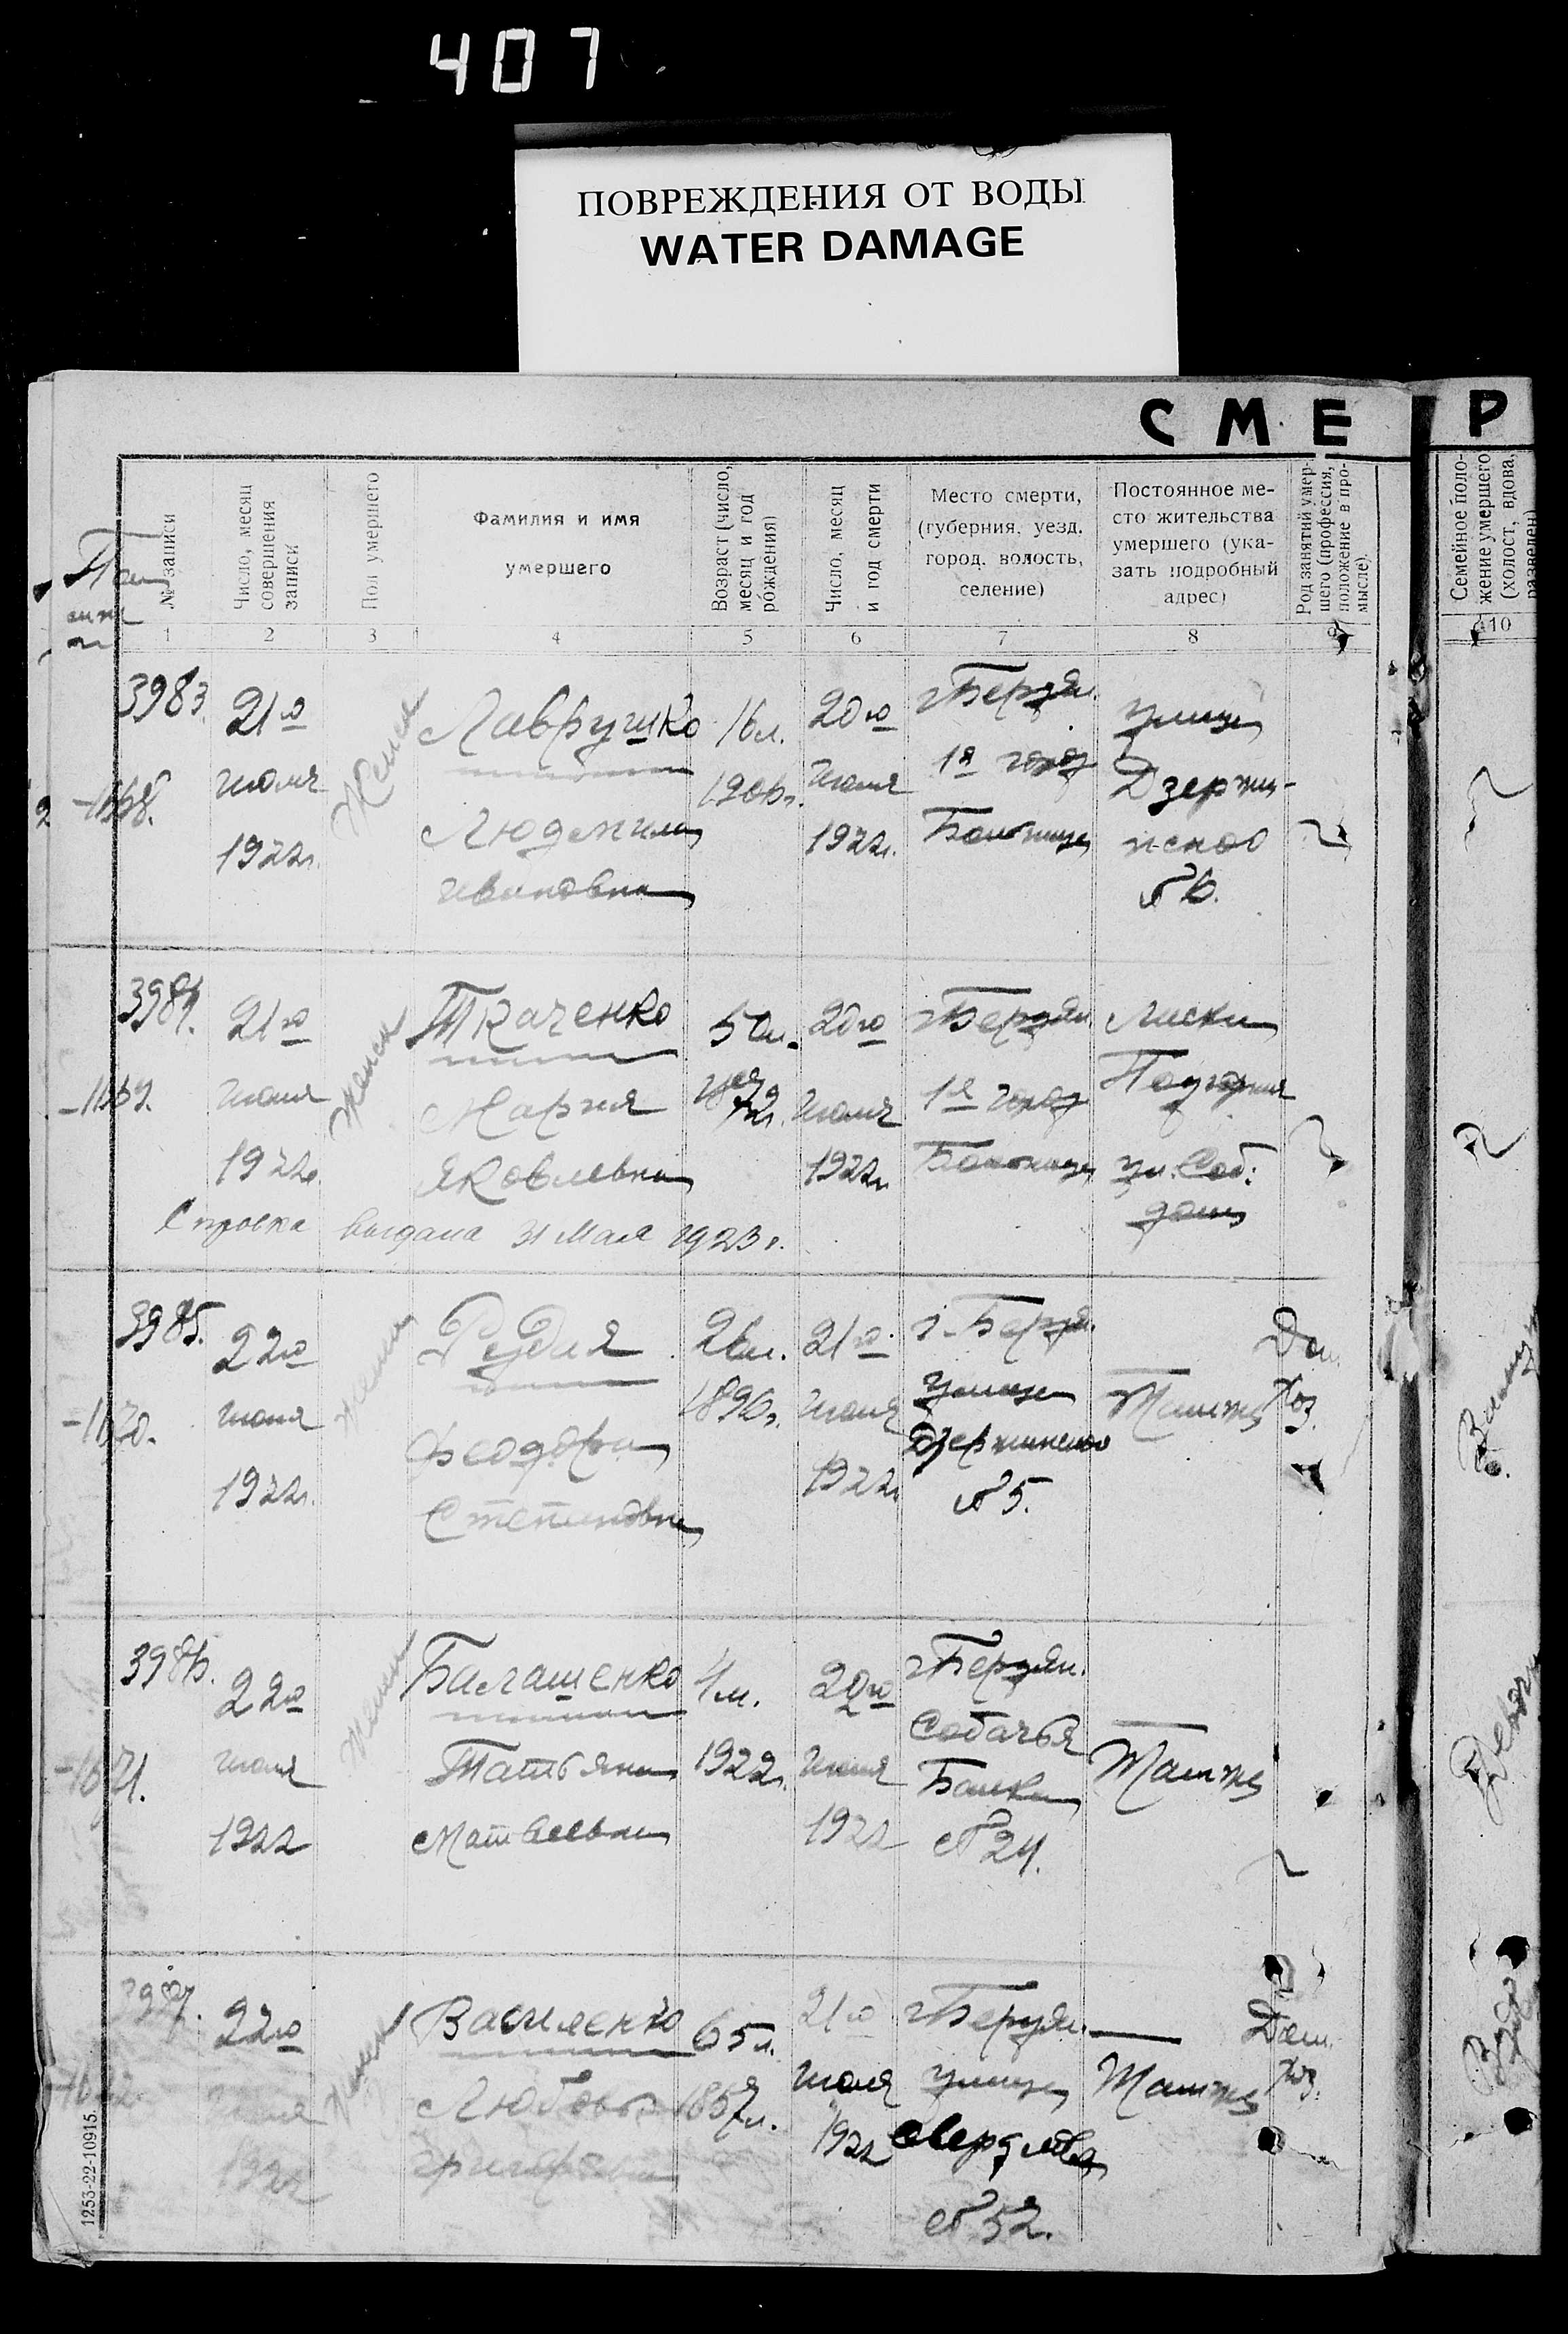 407
ПОВРЕЖДЕНИЯ ОТ ВОДЫ
WATER DAMAGE
С М Е Р
№ записи
Число, месяц совершения записи
Пол умершего
Фамилия и имя умершего
Возраст (число, месяц и год рождения)
Число, месяц и год смерти
Место смерти, (губерния, уезд, город, волость, селение)
Постоянное место жительства умершего (указать подробный адрес)
Род занятий умершего (профессия, положение в промысле).
Семейное положение умершего (холост, вдова, разведен)
1 2 3 4 5 6 7 8 9 10
3983 21го Лаврушко 16л. 20го г Бердян. улица
июля 1906г. июля 1я город Дзержин-
1922г. Людмила 1922г. Больница ского
Ивановна № 6.
3984. 21го Ткаченко 50л. 20го г Бердян Лиски
-1669. июля Женск Мария 1872г. июля 1я город
1922г. Яковлевна 1922г. Больница ул. Соб.
дом
Справка выдана 31 Мая 1923 г.
3985. 22го 26л. 21го г. Бердя. Дом.
-1670. июля 1896г. июля улица Там же Хоз.
Феодора Дзержинского
1922г. Степановна 1922г. № 5.
3986. 22го Балашенко 4м. 20го г Бердян.
-1671. июля Татьяна 1922г. июля Собачья Там же
1922 Матвеевна 1922 Балка
№ 24.
3987. 22го Василенко 65л. 21го г Бердян. Дом.
июля Любовь 1857г. июля улица Там же Хоз.
1922 Григорьевна 1922 Свердлова
№ 52.
1253-22-10915.